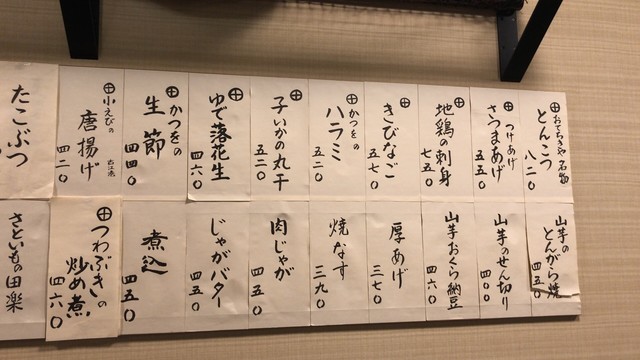 おでちきや名物
とんこつ
八二〇
つけあげ
さつまあげ
五五〇
地鶏の刺身
七五〇
きびなご
五七〇
かつをの
ハラミ
五二〇
子いかの丸干
五二〇
ゆで落花生
四六〇
かつをの
生節
四四〇
小えびの
唐揚げ
四二〇
たこぶつ
山芋の
とんがら焼
四五〇
山芋のせん切り
四〇〇
山芋おくら納豆
四六〇
厚あげ
三七〇
焼なす
三九〇
肉じゃが
四五〇
じゃがバター
四五〇
煮込
四五〇
つわぶきの
炒め煮
四六〇
さといもの田楽